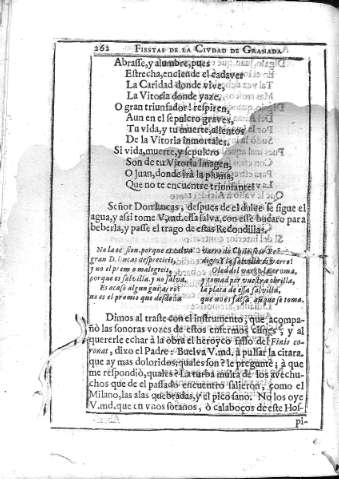 262 FIESTAS DE LA CIVDAD DE GRANADA
Abrasse, y alumbre, pues
Estrecha, enciende el cadaver
La Caridad donde vive,
La Vitoria donde yaze.
O gran triunfador! respiren,
Aun en el sepulcro graves,
Tu vida, y tu muerte, alientos
De la Vitoria inmortales.
Si vida, muerte, y sepulcro
Son de tu Vitoria Imagen,
O Juan, donde irà la pluma,
Que no te encuentre triunfante!
Señor Don Lucas, despues de el dulce se sigue el
agua, y assi tome V.md. essa salva, con esse bucaro para
beberla, y passe el trago de estas Redondillas.
No la
gran D. Lucas
y no el premio
porque es salvilla, y no salva,
Es acaso algun
no es el premio que
la plaça de essa salvilla,
Dimos al traste con el instrumento, que acompa-
ñò las sonoras vozes de estos enfermos cisnes, y al
quererle echar à la obra el heroyco rasso del Finis co-
ronat, dixo el Padre: Buelva V.md. à pulsar la citara,
que ay mas doloridos; quales son? le preguntè; à que
me respondiò, quales? La turba multa de los avechu-
chos que de el passado encuentro salieron, como el
Milano, las alas quebradas, y el pico sano. No los oye
V.md. que en vnos sotanos, ò calaboços de este Hos-
pi-